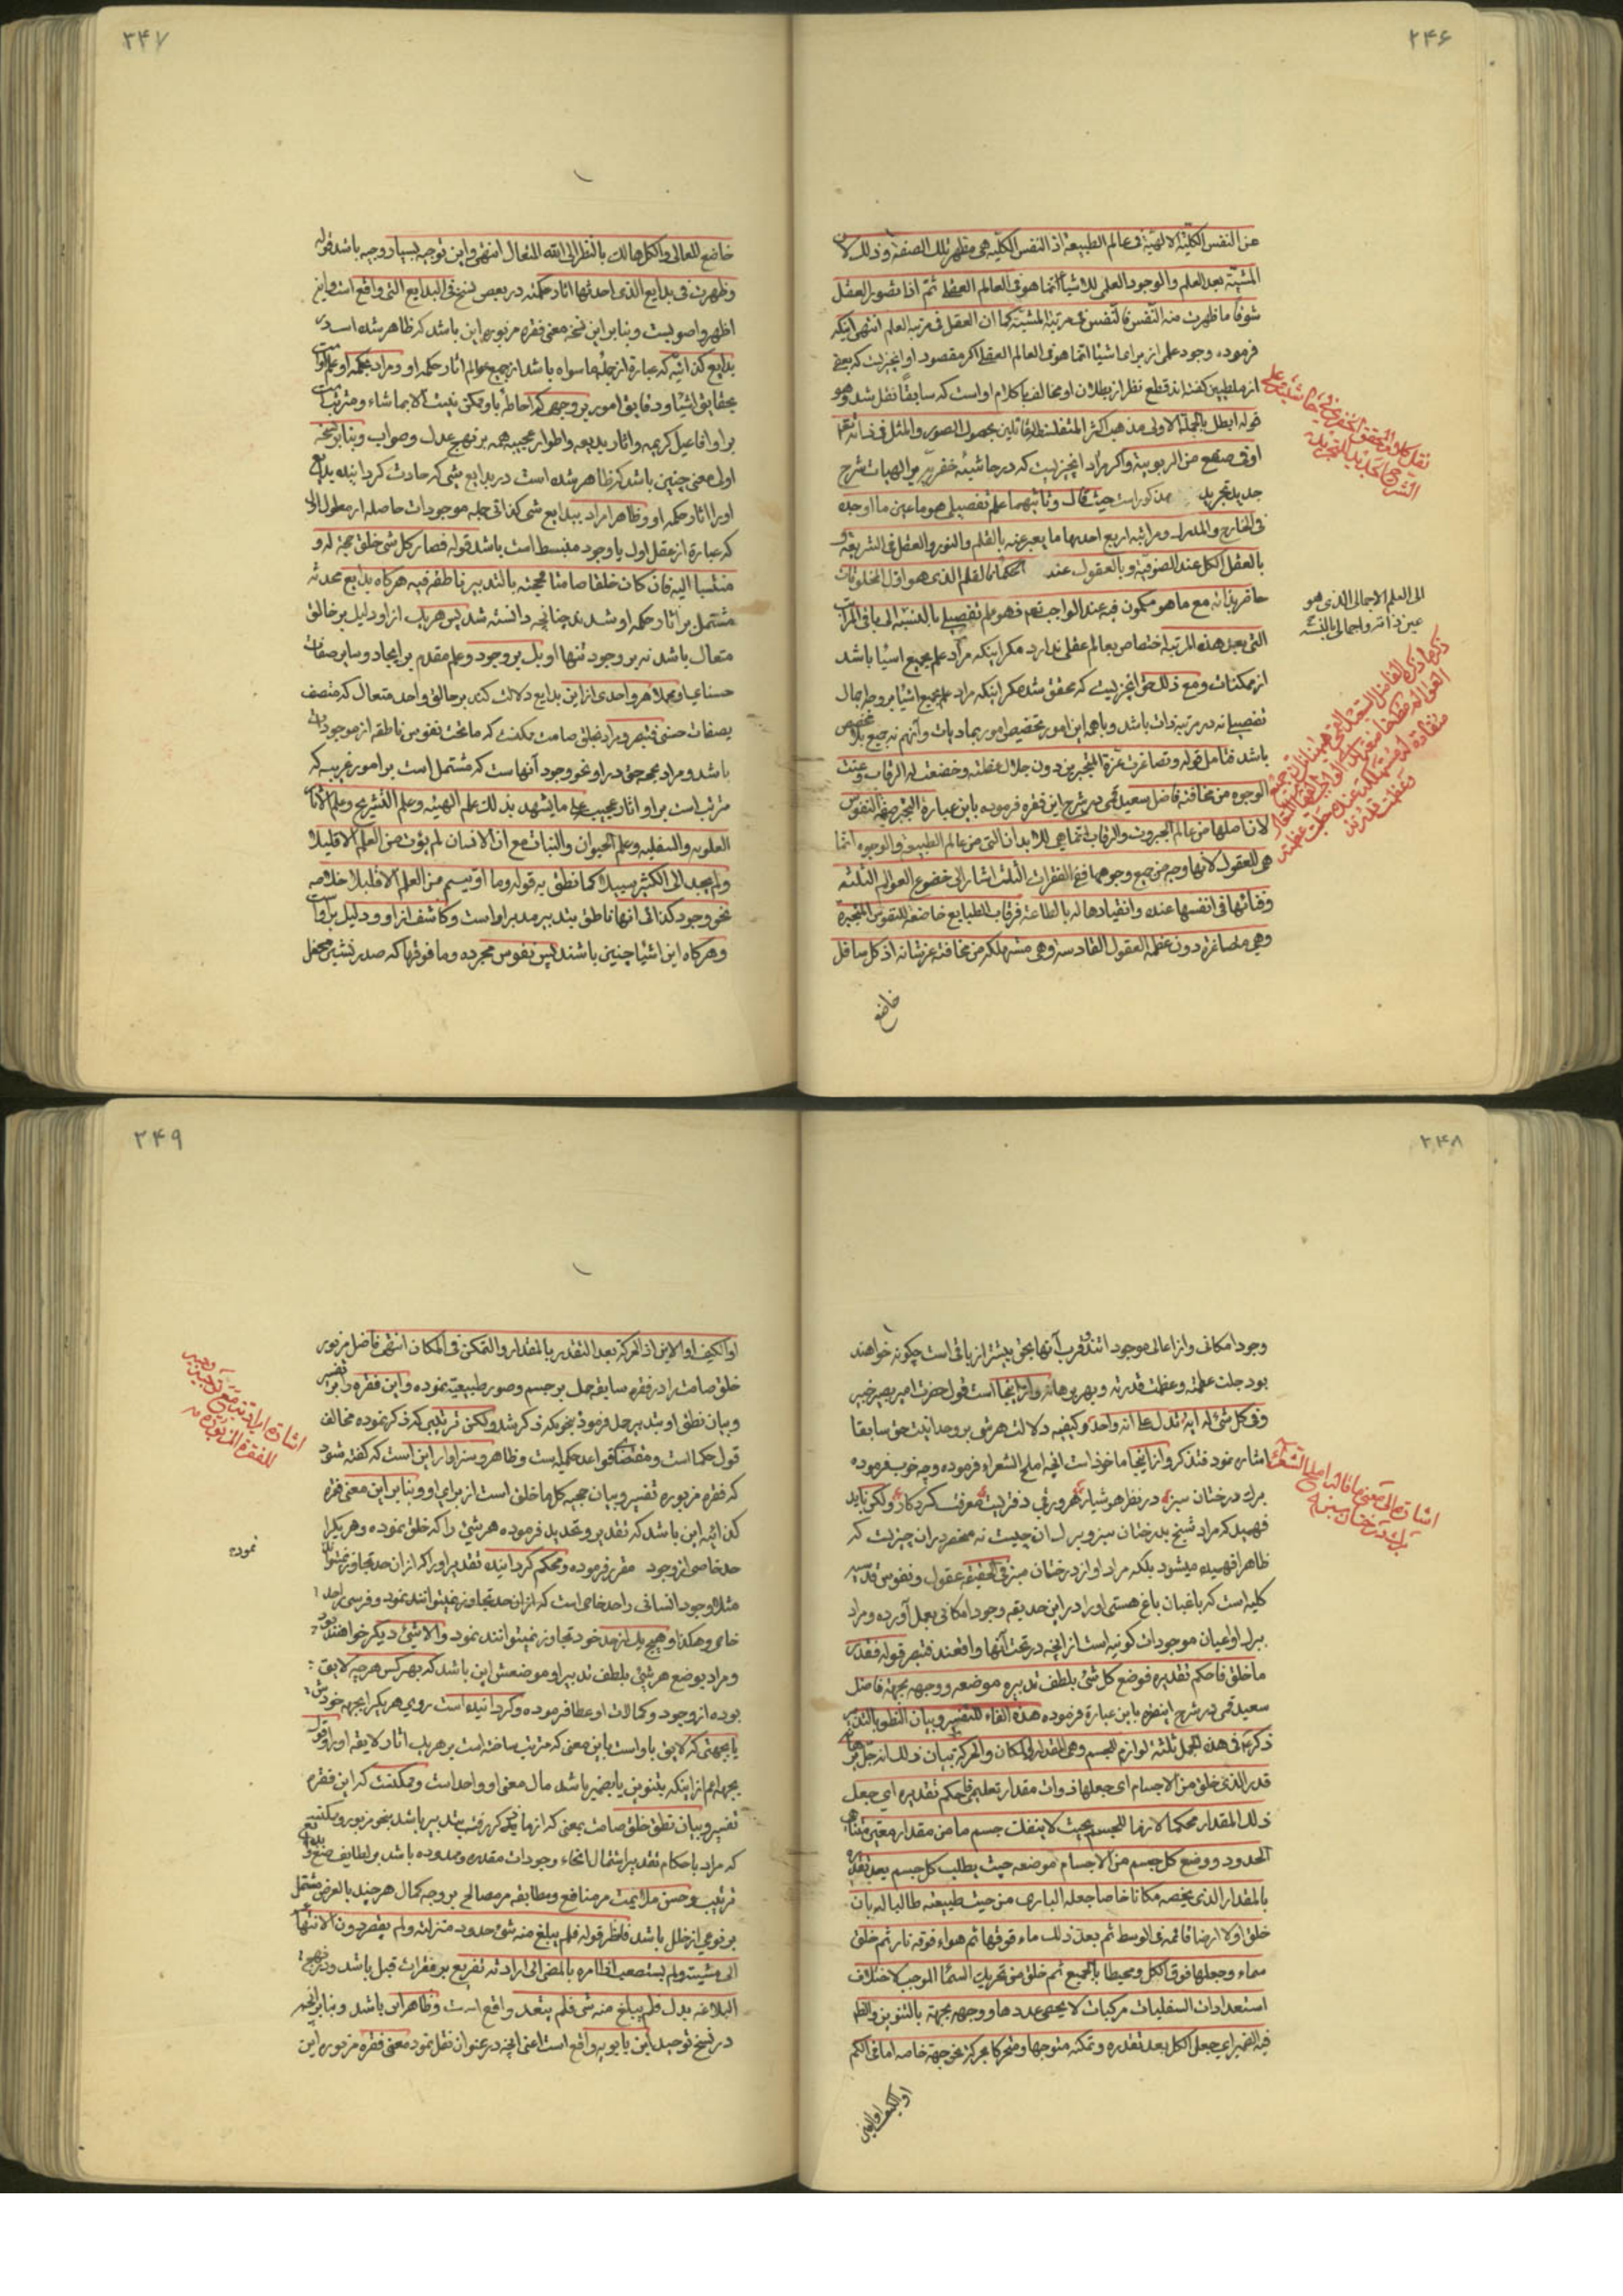 ۲۴۶
من النفس الكلیّة الالهیّة فی عالم الطبیعة اذ النفس الكلیّه هی مظهر تلك الصفة و ذلك لان
المشیّة بعد العلم و الوجود العلمی للاشیاء انّما هو فی العالم العقلی ثمّ اذا تصور العقل
شوقاً ما ظهرت منه النفس فالنفس فی مرتبة المشیّة كما ان العقل فی مرتبة العلم انتهی اینكه
فرموده وجود علمی از برای اشیا انما هو فی العالم العقلی اكر مقصود او انچیزیست كه بعضی
از مبطلین كفته اند قطع نظر از بطلان او مخالف با كلام او است كه سابقاً نقل شد و هو
قوله ابطل بالجملة الاولی مذهب اكثر المتفلسفة القائلین بحصول الصور و المثل فی ذاته تعم
او فی صقع من الربوبیة و اكر مراد انچیزیست كه در حاشیه خفریه بر الهیات شرح
جدید تجرید مذكور است حیث قال و ثانیهما علم تفصیلی هو ما عین ما اوجده
فی الخارج و المدرك و مراتبه اربع احدیها ما یعبر عنه بالقلم و النور و العقل فی الشریعة و
بالعقل الكل عند الصوفیة و بالعقول عند الحكماء فالقلم الذی هو اول المخلوقات
حاضر بذاته مع ما هو مكمون فیه عند الواجب تعم فهو علم تفصیلی بالنسبة الی باقی المراتب
التی بعد هذه المرتبة اختصاص بعالم عقلی ندارد مكر اینكه مراد علم بجمیع اشیا باشد
از ممكنات و مع ذلك حق انچیزیست كه محقق شده مكر اینكه مراد علم بجمیع اشیا بر وجه اجمال
تفصیلی نه در مرتبه ذات باشد و با همه این امور تخصیص امور بمادیات و آنهم نه جمیع بلا مخصص
باشد فتامل قوله و تصاغرت عزة المتجبرین دون جلال عظمته و خضعت له الرقاب و عنت
الوجوه من مخافته فاضل سعید قمی در شرح این فقره فرموده باین عبارة التجبر صفة النفوس
لان اصلها من عالم الجبروت و الرقاب انما هی للابدان التی من عالم الطبیعة و الوجوه انما
هی للعقول لانها وجه من جمیع وجوهها ففی الفقرات الثلث اشار الی خضوع العوالم الثلثه
و فنائها فی انفسها عنده و انقیادها له بالطاعة فرقاب الطبایع خاضعة للنفوس المتجبرة
و هی متصاغرة دون عظمة العقول القادسة و هی مستهلكه من مخافة عزّ شانه اذ كل سافل
خاضع
نقل كلام المحقق الخفری فی حاشیته علی
الشرح الجدید للتجرید
الی العلم الاجمالی الذی هو
عین ذاته و اجمالی بالنسبة
۲۴۷
خاضع للعالی و الكل هالك بالنظر الی الله المتعال انتهی و این توجیه بسیار وجیه باشد قوله
و ظهرت فی بدایع الذی احدثها اثار حكمته در بعضی نسخ فی البدایع التی واقع است و این
اظهر و اصوبست و بنابر این نسخه معنی فقره مزبوره این باشد كه ظاهر شده است در
بدایع كذائیّه كه عبارة از جمله ما سواه باشد از جمیع عوالم اثار حكمة او و مراد بحكمة او علم اوست
بحقایق اشیا و دقایق امور بر وجهی كه احاطه باو ممكن نیست الا بما شاء و مترتب است
بر او افاعیل كریمه و اثار بدیعه و اطوار عجیبه همه بر نهج عدل و صواب و بنابر نسخه
اولی معنی چنین باشد كه ظاهر شده است در بدایع شی كه حادث كردانیده بدایع
او را اثار حكمة او و ظاهرا مراد ببدایع شی كذائی جمله موجودات حاصله از معلول اول
كه عبارة از عقل اول یا وجود منبسط است باشد قوله فصار كل شی خلق حجة له و
منتسبا الیه فان كان خلقا صامتا فحجته بالتدبیر ناطقة فیه هركاه بدایع محدثه
مشتمل بر اثار حكمة او شدند چنانچه دانسته شد پس هریك از او دلیل بر خالق
متعال باشد نه بر وجود تنها او بل بر وجود و علم مقدم بر ایجاد و سایر صفات
حسنای او مجملا هر واحدی از این بدایع دلالت كند بر خالق واحد متعال كه متصف
بصفات حسنی فتبصر و مراد بخلق صامت ممكنست كه ماتحت نفوس ناطقه از موجودات
باشد و مراد بحجت حق در او نحو وجود آنها ست كه مشتمل است بر امور غریبه كه
مترتب است بر او اثار عجیبه علی ما یشهد بذلك علم الهیئه و علم التشریح و علم الاثار
العلویه و السفلیه و علم الحیوان و النبات مع ان الانسان لم یؤت من العلم الا قلیلا
و لم یجد الی الكثیر سبیلا كما نطق به قوله و ما اوتیتم من العلم الا قلیلا خلاصه
نحو وجود كذائی انها ناطق بتدبیر مدبر او است و كاشف از او و دلیل بر اوست
و هركاه این اشیا چنین باشند پس نفوس مجرده و ما فوقها كه صدر نشین محفل
۲۴۸
وجود امكانی و از اعالی موجود اتند و قرب آنها بحق بیشتر از باقی است چكونه خواهند
بود جلت عظمته و عظمت قدرته و بهر برهانه و از اینجا است قول حضرت امیر بصیر خبیر
و فی كل شیء له ایة تدل علی انه واحد و كیفیه دلالت هر شی بر وحدانیت حق سابقا
اشاره نمود فتذكر و از اینجا ماخوذ است انچه املح الشعراء فرموده و چه خوب فرموده
برك درختان سبز در نظر هوشیار هر ورقی دفتریست معرفت كردكار و لكن باید
فهمید كه مراد شیخ بدرختان سبز و برك ان چیست نه منحصر بهمان چیزیست كه
ظاهرا فهمیده میشود بلكه مراد او از درختان سبز فی الحقیقه عقول و نفوس قدسیه
كلیه است كه باغبان باغ هستی او را در این حدیقه وجود امكانی بعمل آورده و مراد
ببرك او اعیان موجودات كونیه است از انچه در تحت آنها واقعند فتبصر قوله فقدر
ما خلق فاحكم تقدیره فوضع كل شیء بلطف تدبیره موضعه و وجهه بجهة فاضل
سعید قمی در شرح اینفقره باین عبارة فرموده هذه الفاء للتفسیر و بیان النطق بالتدبیر
ذكر ع فی هذه الجمل ثلثة لوازم للجسم و هی المقدار و المكان و الحركة تبیان ذلك انه جل برهانه
قدر الذی خلق من الاجسام ای جعلها ذوات مقدار تعلیمی فاحكم تقدیره ای جعل
ذلك المقدار محكما لازما للجسم بحیث لا ینفك جسم ما من مقدار معین متناهی
الحدود و وضع كل جسم من الاجسام موضعه حیث یطلب كل جسم بعد تقدره
بالمقدار الذی یخصه مكانا خاصا جعله الباری من حیث طبیعته طالبا له بان
خلق اولا ارضا قائمة فی الوسط ثم بعد ذلك ماء فوقها ثم هواء فوقه نار ثم خلق
سماء و جعلها فوق الكل و محیطا بالجمیع ثم خلق من تحریك السماء الموجب لاختلاف
استعدادات السفلیات مركبات لا یحصی عددها و وجهه بجهة بالتنوین و الظ
فیه الضمیر ای جعل الكل بعد تقدره و تمكنه متوجها و متحركا بحركة نحو جهة خاصه اما فی الكم
او الكیف او الاین
اشاره الی معنی ما قاله املح الشعراء
برك درختان سبز اه
۲۴۹
او الكیف او الاین اذ الحركة بعد التقدیر بالمقدار و التمكن فی المكان انتهی فاضل مزبور
خلق صامت را در فقره سابقه حمل بر جسم و صور طبیعیه نموده و این فقره را بر تفسیر
و بیان نطق او بتدبیر حمل فرموده بنحویكه ذكر شد و لكن ترتیبی كه ذكر نموده مخالف
قول حكما است و مقتضای قواعد حكمیه است و ظاهر و سزاوار این است كه كفته شود
كه فقره مزبوره تفسیر و بیان حجیه كل ما خلق است از برای او و بنابر این معنی فقره
كذائیه این باشد كه تقدیر و تحدید فرموده هر شیئی را كه خلق نموده و هر یكرا
حد خاصی از وجود مقرر فرموده و محكم كردانیده تقدیر او را كه از ان حد تجاوز نمیتواند
مثلا وجود انسانی را حد خاصی است كه از ان حد تجاوز نمیتوانند نمود و فرسی را حد
خاصی و هكذا و هیچ یك از حد خود تجاوز نمیتوانند نمود و الا شیئ دیكر خواهند بود
و مراد بوضع هر شیئ بلطف تدبیر او موضعش این باشد كه بهر كس هر چه لایق
بوده از وجود و كمالات او عطا فرموده و كردانیده است روی هر یكرا بجهه خودش
یا بجهتی كه لایق باو است باین معنی كه مترتب ساخته است بر هر یك اثار لایقه او را و قوله
بجهة اعم از اینكه بتنوین یا بضمیر باشد مال معنی او واحد است و ممكنست كه این فقره
تفسیر و بیان نطق خلق صامت بمعنی كه از ما ذكر رفت بتدبیر باشد بنحو مزبور و ممكنست
كه مراد باحكام تقدیر اشتمال انحاء وجودات مقدره و محدوده باشد بر لطایف صنع و بدایع
ترتیب و حسن ملائیمت مر منافع و مطابقه مر مصالح بر وجه كمال هر چند بالعرض مشتمل
بر نوعی از خلل باشد فانظر قوله فلم یبلغ منه شیء حدود منزلته و لم یقصر دون الانتهاء
الی مشیته و لم یستصعب اذ امره بالمضی الی ارادته تفریع بر فقرات قبل باشد و در نهج
البلاغه بدل فلم یبلغ منه شی فلم یتعد واقع است و ظاهر این باشد و بنابر انچه
در نسخ توحید ابن بابویه واقع است اعنی انچه در عنوان نقل نمود معنی فقره مزبوره این
نموده